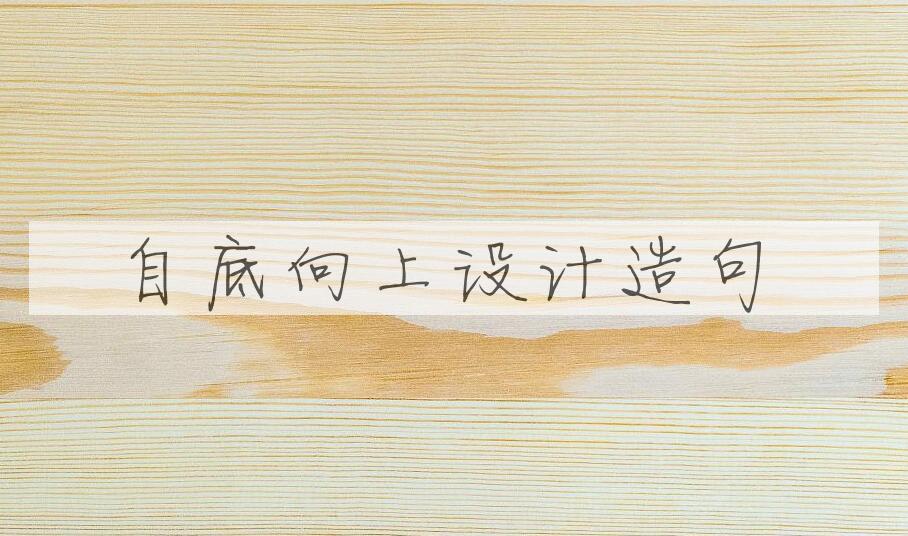 自底向上设计造句